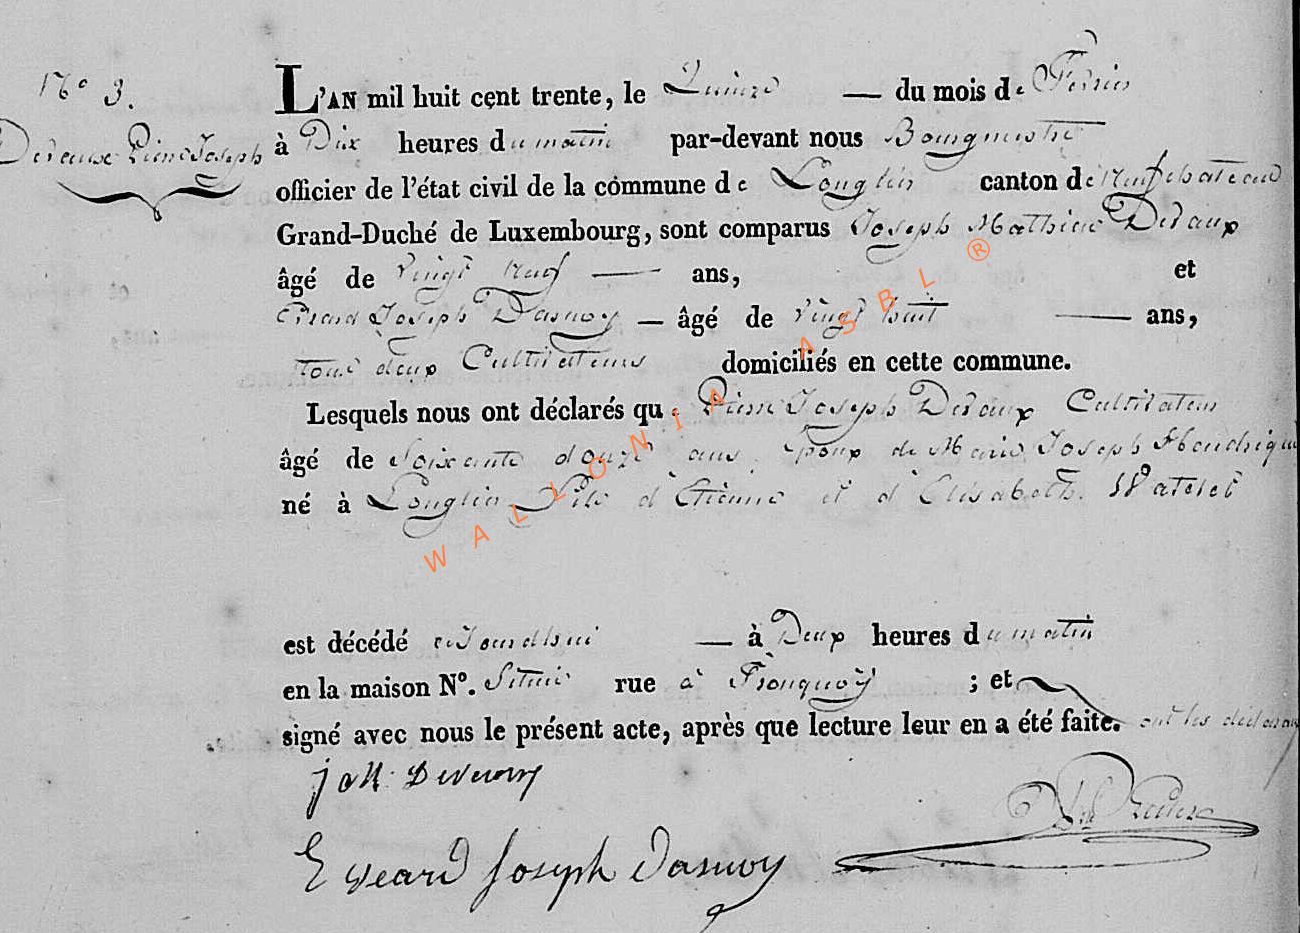 N° 3.
Devaux Pierre Joseph
L'AN mil huit cent trente, le Quinze — du mois de Fevrier
à Dix heures du matin par-devant nous Bourgmestre
officier de l'état civil de la commune de Longlier canton de Neufchateau
Grand-Duché de Luxembourg, sont comparus Joseph Mathieu Devaux
âgé de vingt neuf — ans, et
Evrard Joseph Dasnoy — âgé de vingt huit — ans,
tous deux Cultivateurs domiciliés en cette commune.
Lesquels nous ont déclarés que Pierre Joseph Devaux Cultivateur
âgé de Soixante douze ans, Epoux de Marie Joseph Handrique
né à Longlier Fils d'Etienne et d'Elisabeth Watelet
est décédé aujourdhui — à Deux heures du matin
en la maison N°. Située rue à Fronquoy ; et
signé avec nous le présent acte, après que lecture leur en a été faite. ont les déclarans
j M Deveaux
Evrard Joseph Dasnoy
WALLONIA ASBL ®